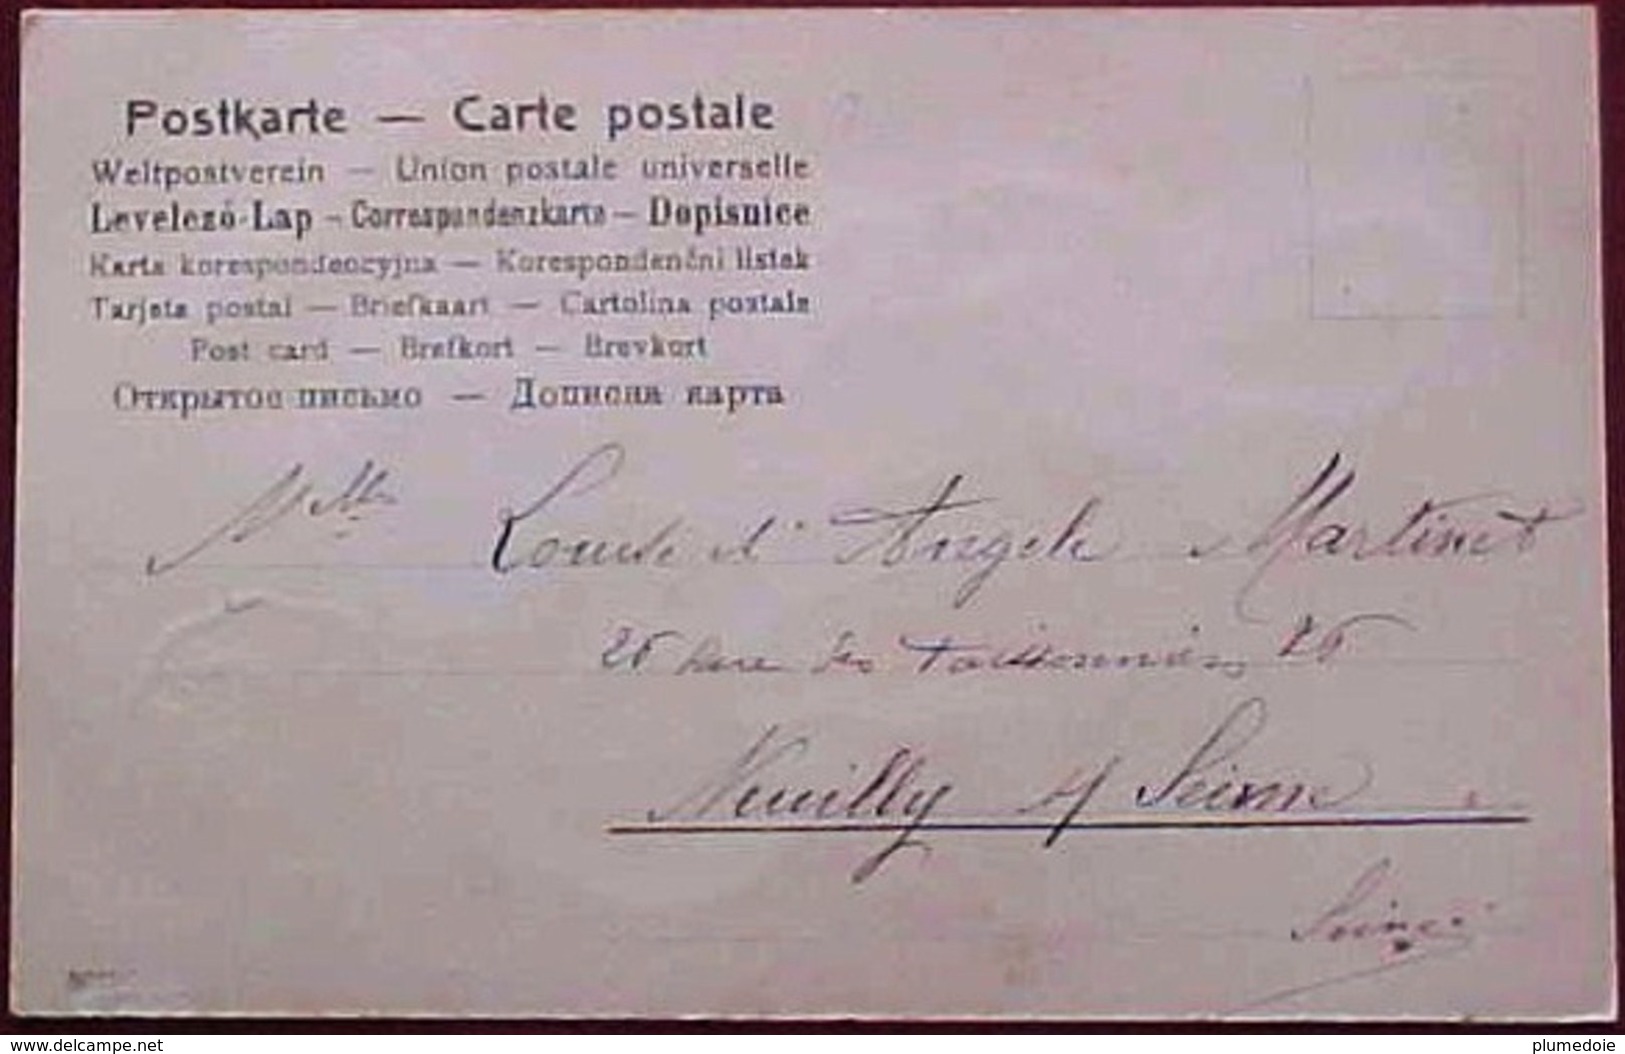 Postkarte — Carte postale
Weltpostverein — Union postale universelle
Levelező-Lap – Correspondenzkarte – Dopisnice
Karta korespondencyjna — Korespondenčni listek
Tarjeta postal — Briefkaart — Cartolina postale
Post card — Brefkort — Brevkort
Открытое письмо — Дописна карта
Mlles Louise d'Angele Martinet
26 rue des 26
Neuilly s/ Seine
Seine
www.delcampe.net
plumedoie